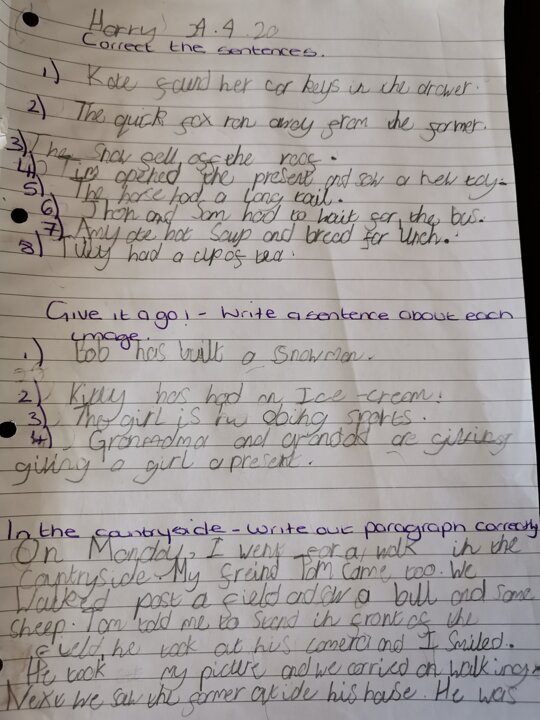 Harry 21.4.20
Correct the sentences.
1) Kate found her car keys in the drawer.
2) The quick fox ran away from the farmer.
3) The snow fell off the roof.
4) Tim opened the present and saw a new toy.
5) The horse had a long tail.
6) Shon and Sam had to wait for the bus.
7) Amy ate hot soup and bread for lunch.
8) Tilly had a cup of tea.
Give it a go! - Write a sentence about each
image.
1) Bob has built a snowman.
2) Kitty has had an Ice-cream.
3) The girl is doing sports.
4) Grandma and grandad are giving
giving a girl a present.
In the countryside - Write out paragraph correctly
On Monday, I went for a walk in the
Countryside. My freind Tom came too. We
Walked past a field and saw a bull and some
sheep. Tom told me to stand in front of the
field, he took out his camera and I smiled.
He took my picture and we carried on walking.
Next we saw the farmer outside his house. He was